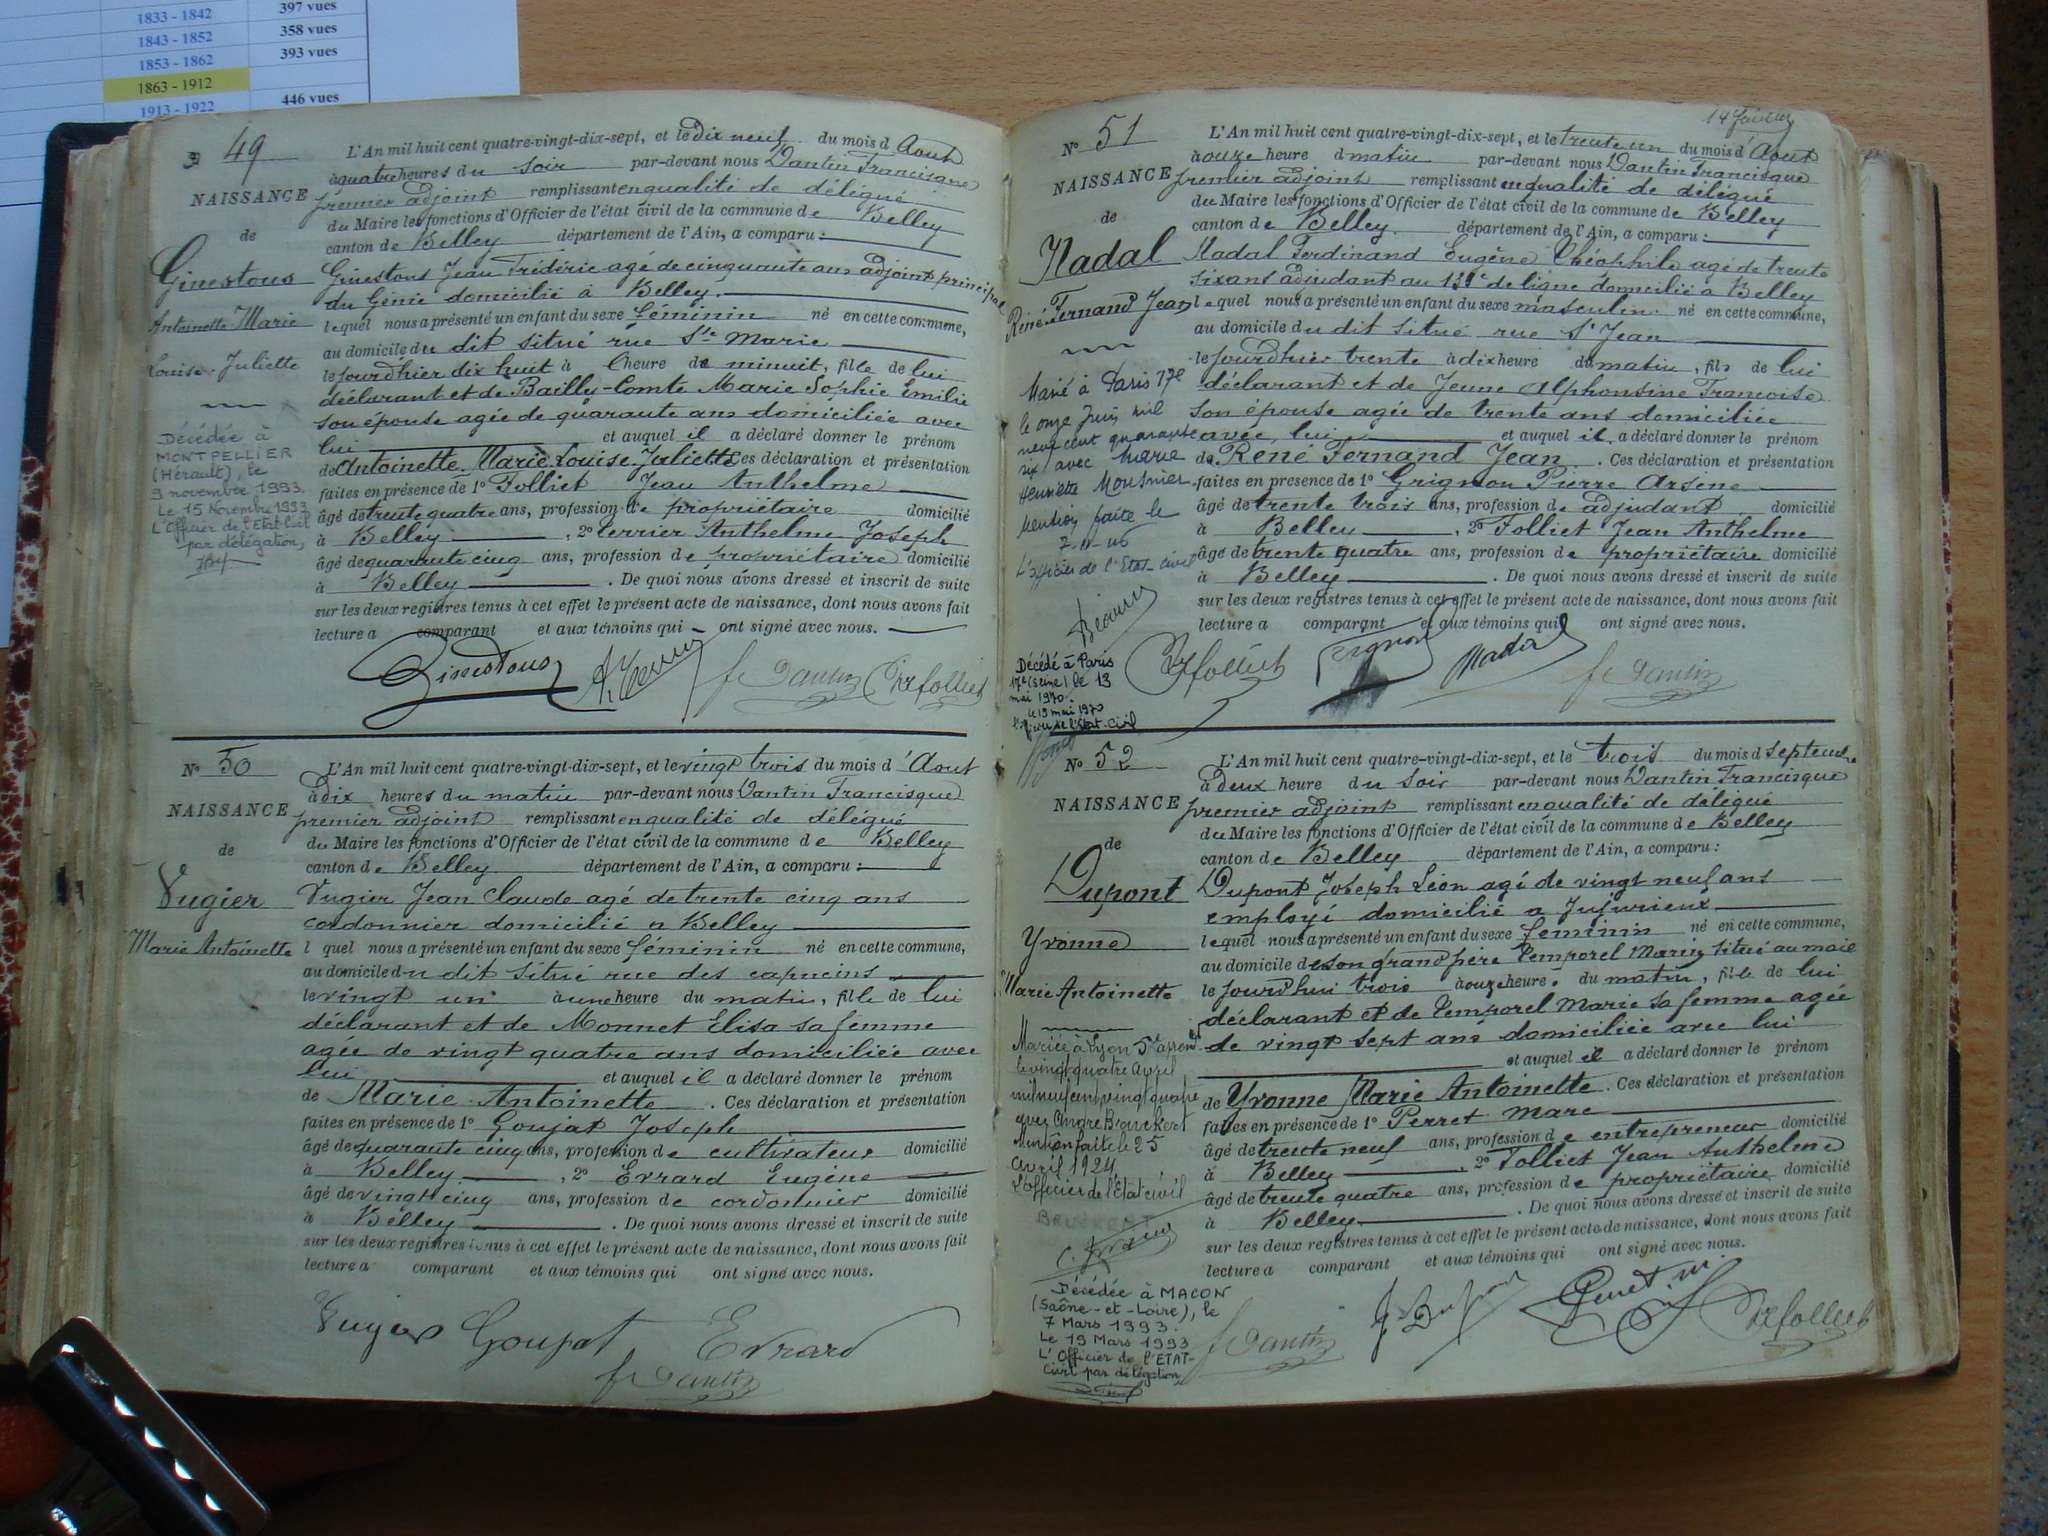 1833 - 1842 397 vues
1843 - 1852 358 vues
1853 - 1862 393 vues
1863 - 1912
1913 - 1922 446 vues
49
NAISSANCE
de
Ginestous
Antoinette Marie
Louise-Juliette
Décédée à
MONTPELLIER
(Hérault), le
9 novembre 1993.
Le 15 Novembre 1993
L'Officier de l'Etat Civil
par délégation,
L'An mil huit cent quatre-vingt-dix-sept, et le dix neuf du mois d'Aout
à quatre heures du soir par-devant nous Dantin Francisque
premier adjoint remplissant en qualité de délégué
du Maire les fonctions d'Officier de l'état civil de la commune de Belley
canton de Belley département de l'Ain, a comparu :
Ginestous Jean Frédéric agé de cinquante ans adjoint principal
du Génie domicilié à Belley.
lequel nous a présenté un enfant du sexe féminin né en cette commune,
au domicile du dit situé rue Ste Marie
le jourdhier dix huit à l'heure de minuit, fille de lui
déclarant et de Bailly-Comte Marie Sophie Emilie
son épouse agée de quarante ans domiciliée avec
lui et auquel il a déclaré donner le prénom
de Antoinette Marie Louise Juliette Ces déclaration et présentation
faites en présence de 1° Folliet Jean Anthelme
âgé de trente quatre ans, profession de propriétaire domicilié
à Belley, 2° Perrier Anthelme Joseph
âgé de quarante cinq ans, profession de propriétaire domicilié
à Belley. De quoi nous avons dressé et inscrit de suite
sur les deux registres tenus à cet effet le présent acte de naissance, dont nous avons fait
lecture a comparant et aux témoins qui ont signé avec nous.
Ginestous f Dantin folliet
N° 50
NAISSANCE
de
Vugier
Marie Antoinette
L'An mil huit cent quatre-vingt-dix-sept, et le vingt trois du mois d'Aout
à dix heures du matin par-devant nous Dantin Francisque
premier adjoint remplissant en qualité de délégué
du Maire les fonctions d'Officier de l'état civil de la commune de Belley
canton de Belley département de l'Ain, a comparu :
Vugier Jean Claude agé de trente cinq ans
cordonnier domicilié a Belley
l quel nous a présenté un enfant du sexe féminin né en cette commune,
au domicile du dit situé rue des capucins
le vingt un à une heure du matin, fille de lui
déclarant et de Monnet Elisa sa femme
agée de vingt quatre ans domiciliée avec
lui et auquel il a déclaré donner le prénom
de Marie Antoinette. Ces déclaration et présentation
faites en présence de 1° Goujat Joseph
âgé de quarante cinq ans, profession de cultivateur domicilié
à Belley, 2° Evrard Eugène
âgé de vingt cinq ans, profession de cordonnier domicilié
à Belley. De quoi nous avons dressé et inscrit de suite
sur les deux registres tenus à cet effet le présent acte de naissance, dont nous avons fait
lecture a comparant et aux témoins qui ont signé avec nous.
Vugier Goujat Evrard
f Dantin
14 février
N° 51
NAISSANCE
de
Nadal
René Fernand Jean
Marié à Paris 17e
le onze Juin mil
neuf cent quarante
six avec Marie
Henriette Mousnier
Mention faite le
7-11-46
L'officier de l'Etat-civil
Décédé à Paris
17e (Seine) le 13
mai 1970.
le 19 mai 1970
l'officier de l'Etat-Civil
L'An mil huit cent quatre-vingt-dix-sept, et le trente un du mois d'Aout
à onze heure d matin par-devant nous Dantin Francisque
premier adjoint remplissant en qualité de délégué
du Maire les fonctions d'Officier de l'état civil de la commune de Belley
canton de Belley département de l'Ain, a comparu :
Nadal Ferdinand Eugène Théophile agé de trente
six ans adjudant au 133e de ligne domicilié a Belley
lequel nous a présenté un enfant du sexe masculin né en cette commune,
au domicile du dit situé rue St Jean
le jourdhier trente à dix heure du matin, fils de lui
déclarant et de Jeune Alphonsine Françoise
son épouse agée de trente ans domiciliée
avec lui et auquel il a déclaré donner le prénom
de René Fernand Jean. Ces déclaration et présentation
faites en présence de 1° Grignon Pierre Arsène
âgé de trente trois ans, profession de adjudant domicilié
à Belley, 2° Folliet Jean Anthelme
âgé de trente quatre ans, profession de propriétaire domicilié
à Belley. De quoi nous avons dressé et inscrit de suite
sur les deux registres tenus à cet effet le présent acte de naissance, dont nous avons fait
lecture a comparant et aux témoins qui ont signé avec nous.
folliet Grignon Nadal f Dantin
N° 52
NAISSANCE
de
Dupont
Yvonne
Marie Antoinette
Mariée à Lyon 5e arrondt
le vingt quatre Avril
mil neuf cent vingt quatre
avec André Bruckert
mention faite le 25
avril 1924
L'Officier de l'Etat civil
BRUCKERT
Décédée à MACON
(Saône-et-Loire), le
7 Mars 1993.
Le 19 Mars 1993
L'Officier de l'ETAT-
Civil par délégation
L'An mil huit cent quatre-vingt-dix-sept, et le trois du mois d septembre
à deux heure du soir par-devant nous Dantin Francisque
premier adjoint remplissant en qualité de délégué
du Maire les fonctions d'Officier de l'état civil de la commune de Belley
canton de Belley département de l'Ain, a comparu :
Dupont Joseph Léon agé de vingt neuf ans
employé domicilié a Jujurieux
lequel nous a présenté un enfant du sexe féminin né en cette commune,
au domicile de son grand père Temporel Marin situé au mail
le jourdhui trois à onze heure du matin, fille de lui
déclarant et de Temporel Marie sa femme agée
de vingt sept ans domiciliée avec lui
et auquel il a déclaré donner le prénom
de Yvonne Marie Antoinette. Ces déclaration et présentation
faites en présence de 1° Perret Marc
âgé de trente neuf ans, profession de entrepreneur domicilié
à Belley, 2° Folliet Jean Anthelme
âgé de trente quatre ans, profession de propriétaire domicilié
à Belley. De quoi nous avons dressé et inscrit de suite
sur les deux registres tenus à cet effet le présent acte de naissance, dont nous avons fait
lecture a comparant et aux témoins qui ont signé avec nous.
f Dantin J. Dupont Perret m folliet